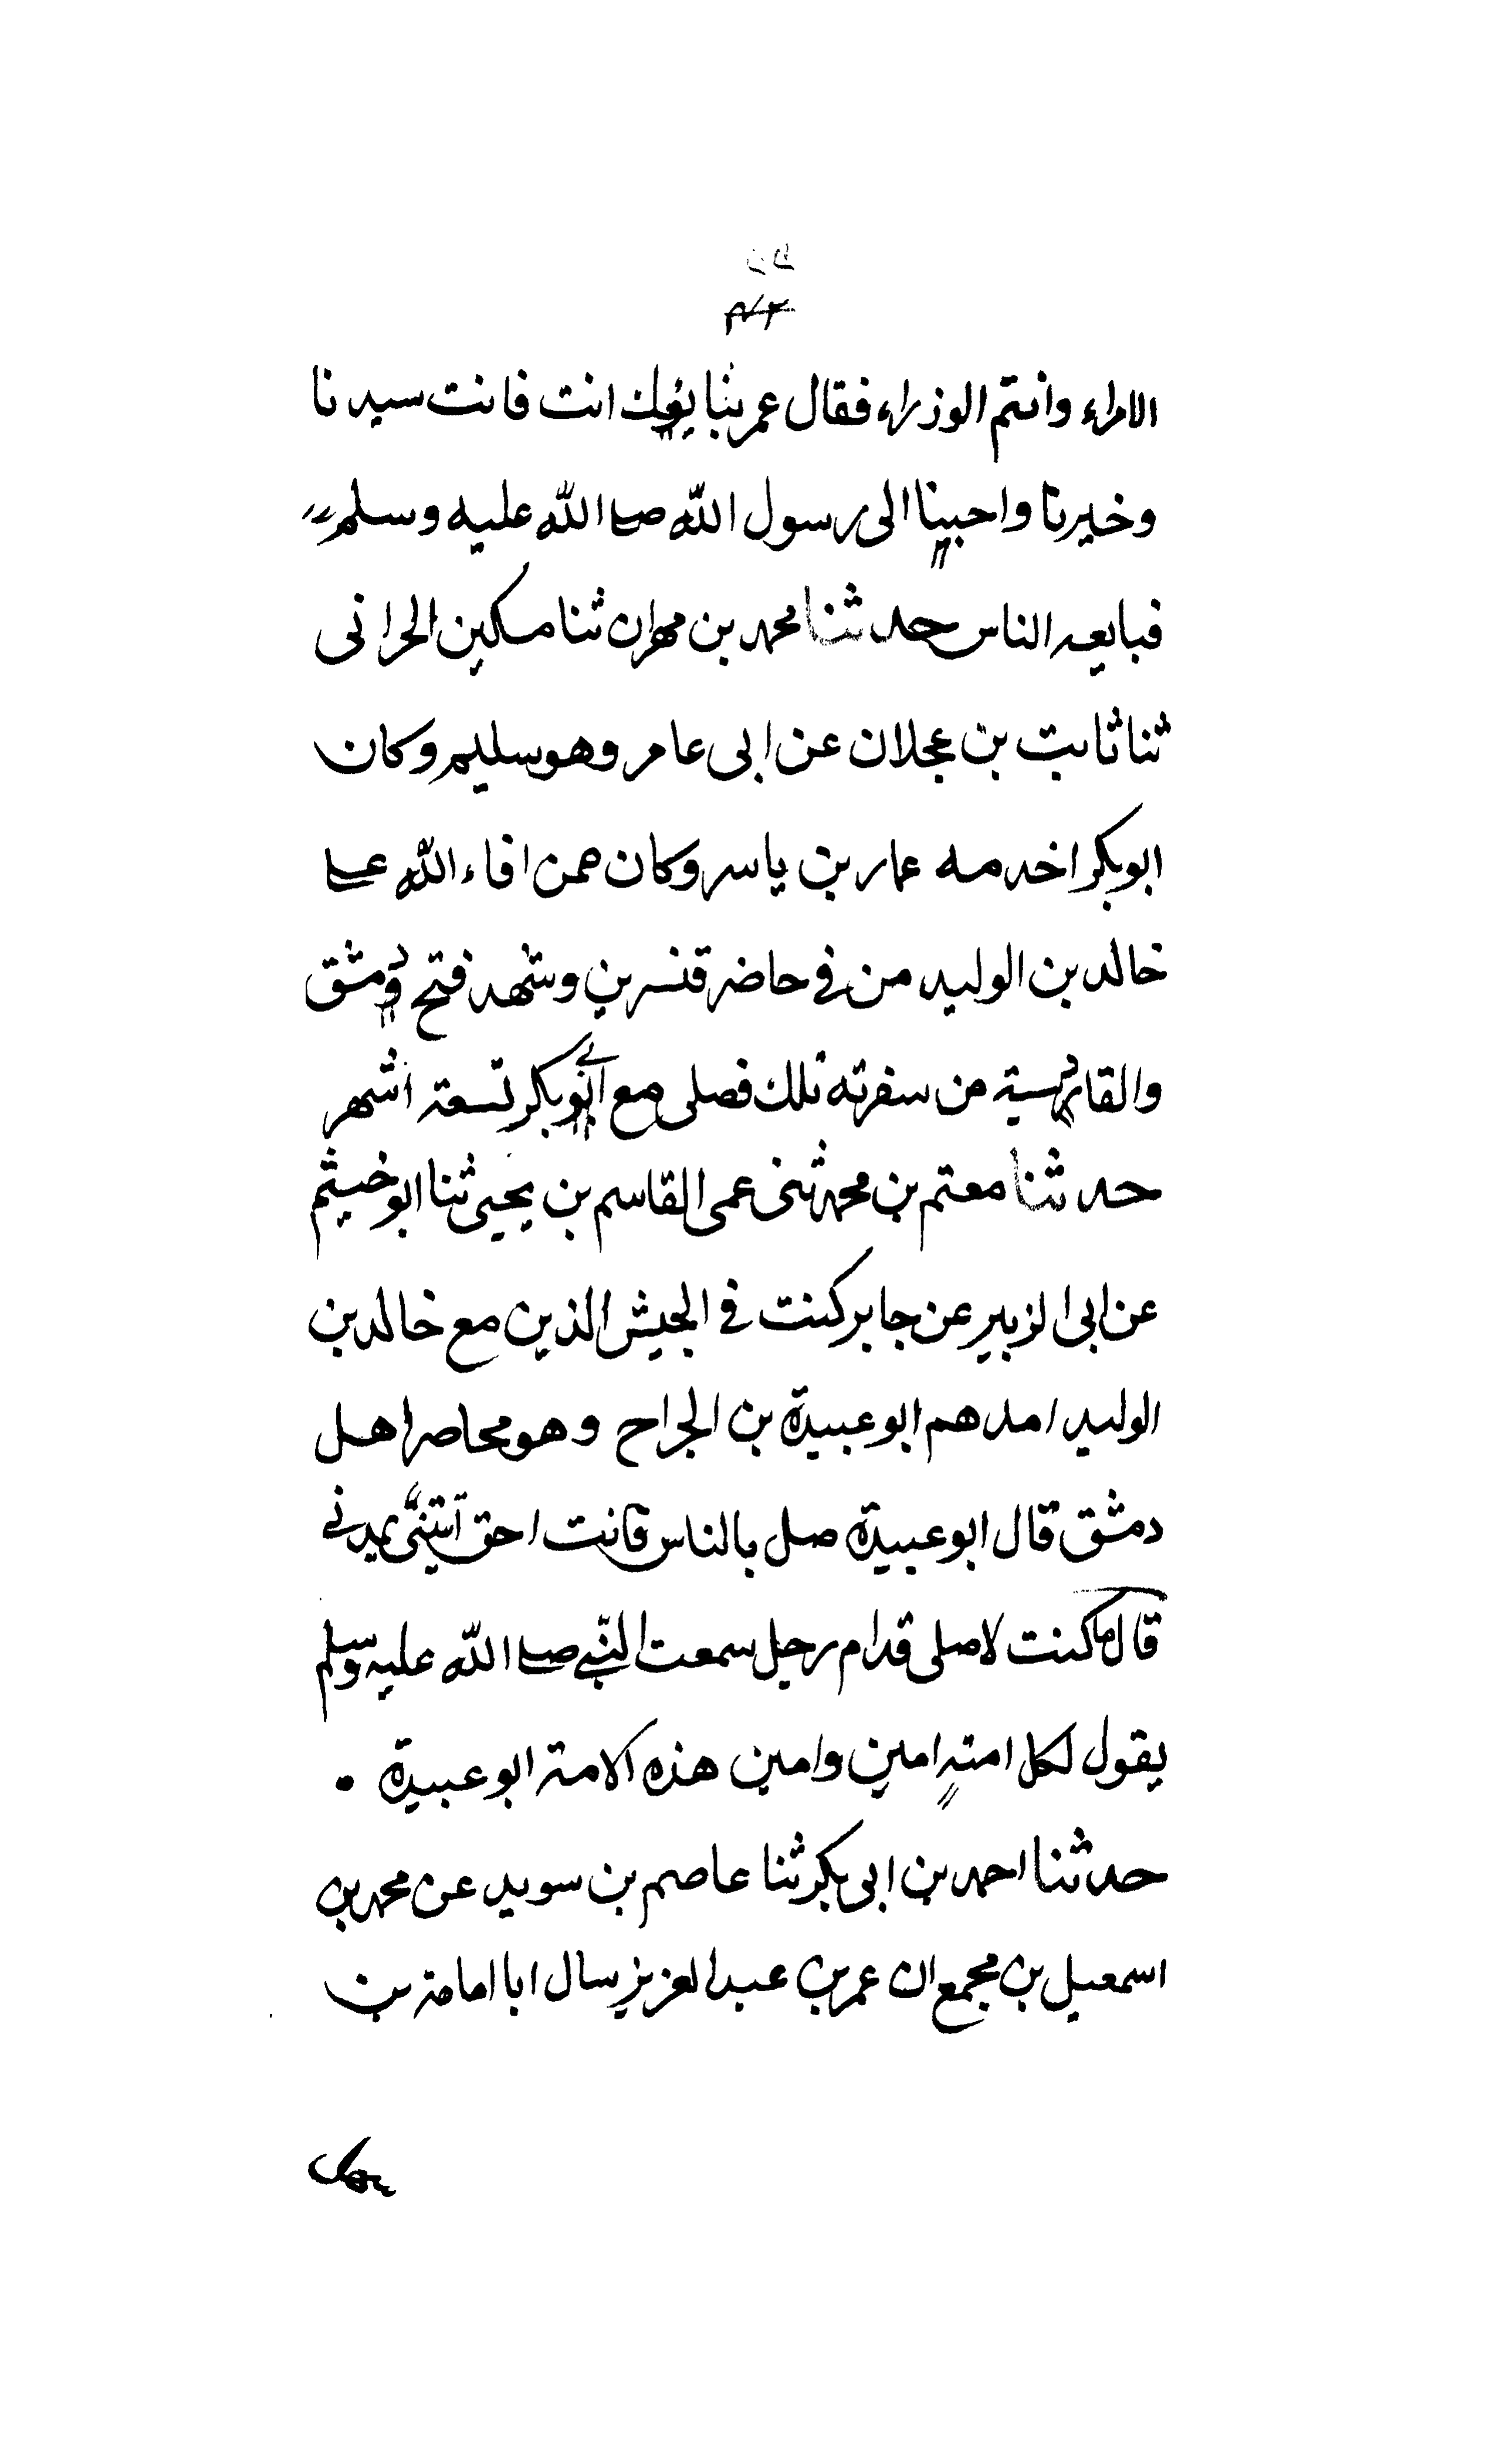 الامراء وانتم الوزراء فقال عمر بنا يؤك انت فانت سيدنا
وخيرنا واحبينا الى رسول الله صلى الله عليه وسلم
فبايعه الناس حدثنا محمد بن مهران ثنا مسكين الحرانى
ثنا ثابت بن عجلان عن ابى عامر وهو سليم وكان
ابو بكر اخدمه عمار بن ياسر وكان ممن افاء الله على
خالد بن الوليد من فى حاضر قنسرين وشهد فتح دمشق
والقادسية من سفرته تلك فصلى مع ابى بكر تسعة اشهر
حدثنا معتم بن محمد ثنى عمى القاسم بن يحيى ثنا ابو خيثم
عن ابى الزبير عن جابر كنت فى الجيش الذين مع خالد بن
الوليد امدهم ابو عبيدة بن الجراح وهو محاصر اهل
دمشق قال ابو عبيدة صل بالناس فانت احق اتيتنى بمدنى
قال ما كنت لاصلى قدام رجل سمعت النبى صلى الله عليه وسلم
يقول لكل امتة امين وامين هذه الامة ابو عبيدة •
حدثنا احمد بن ابى بكر ثنا عاصم بن سويد عن محمد بن
اسمعيل بن مجمع ان عمر بن عبد العزيز سال ابا امامة بن
سهل